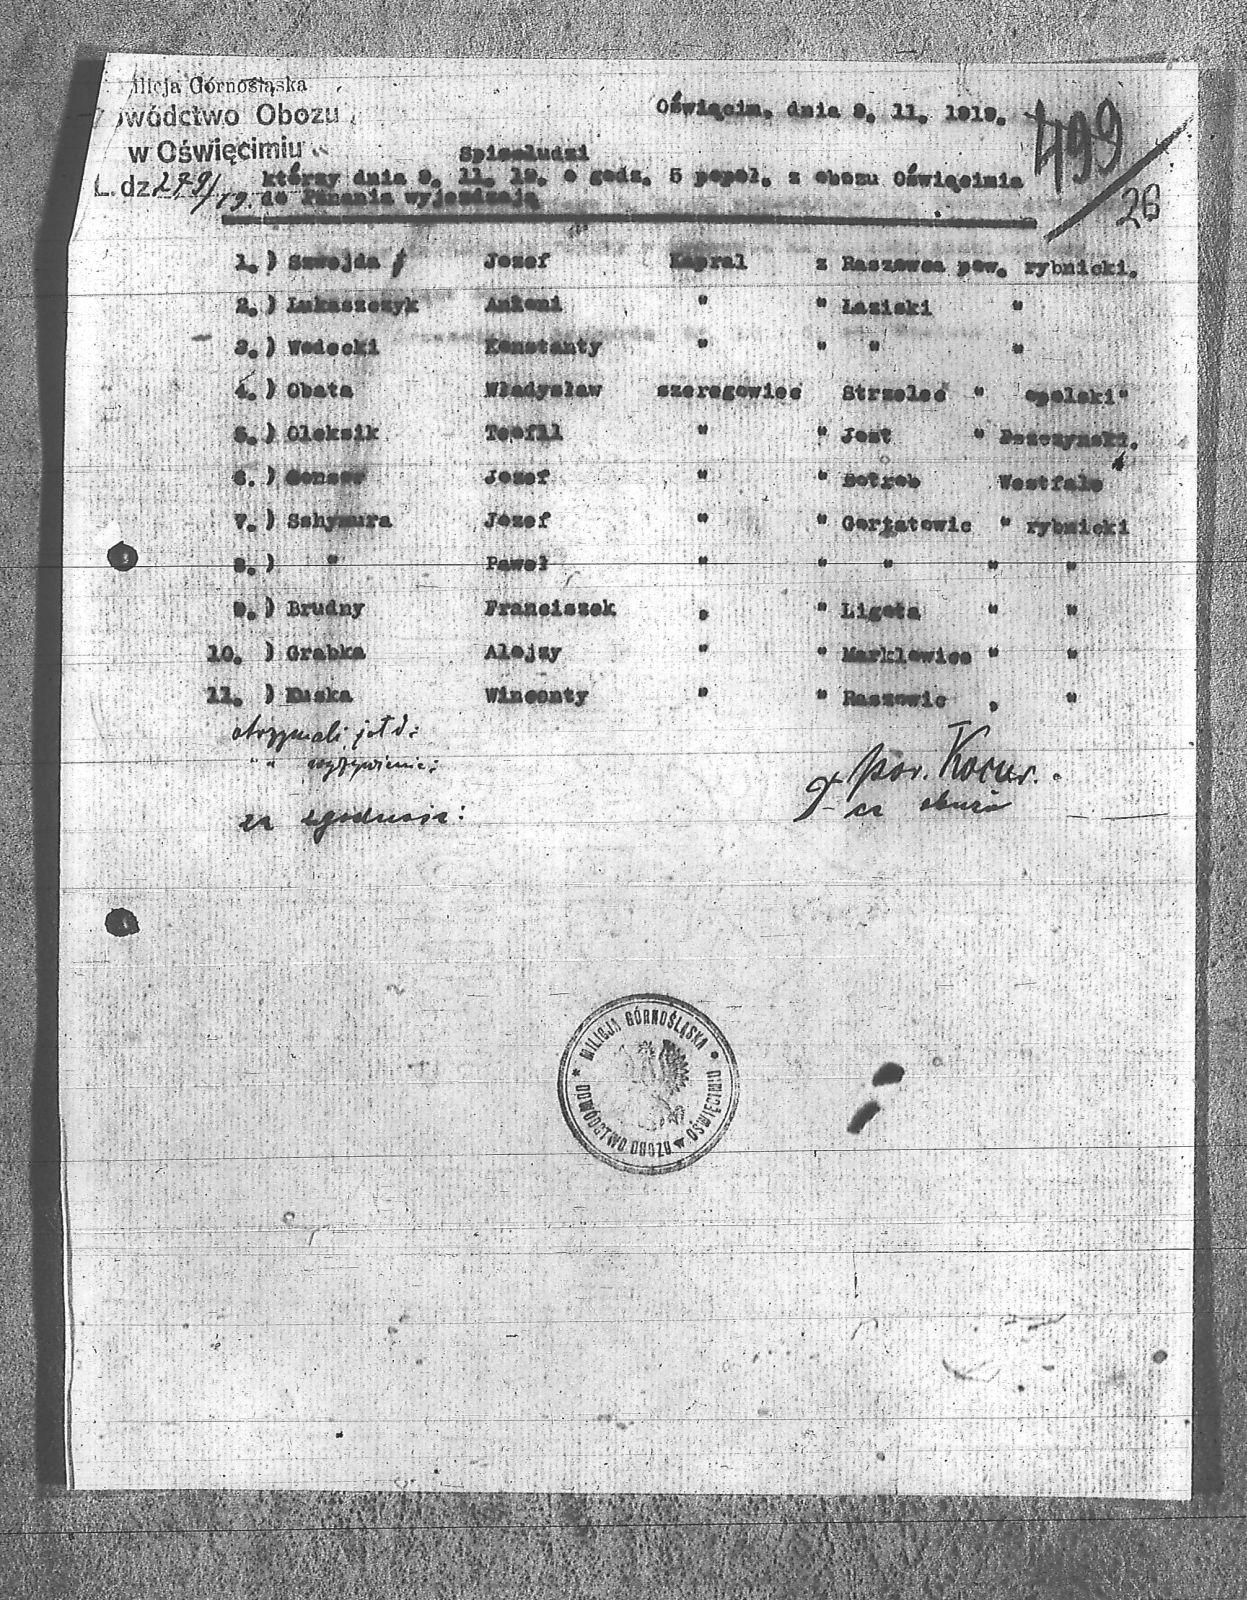 ilicja Górnośląska
owództwo Obozu
w Oświęcimiu
L. dz. 279/19.
Oświęcim, dnia 9. 11. 1919.
499/26
Spis ludzi
którzy dnia 9. 11. 19. o godz. 5 popoł. z obozu Oświęcimia
do Poznania wyjeżdzają
1. ) Szwejda Jozef Kapral z Raszowca pow. rybnicki.
2. ) Łukaszczyk Antoni " " Łaziski "
3. ) Wodecki Konstanty " " " "
4. ) Obata Władysław szeregowiec Strzelec " opolski"
5. ) Oleksik Teofil " " Jozt " Pszczynski.
6. ) Jozef " " Botrob Westfale
7. ) Sshymura Jozef " " Gorzatowic " rybnicki
8. ) " Paweł " " " " "
9. ) Brudny Franciszek " " Ligota " "
10. ) Grabka Alojzy " " Marklowice " "
11. ) Kuska Wincenty " " Raszowic , "
otrzymali żołd:
" " wyżywienie:
za zgodność:
por. Kocur.
MILICJA GÓRNOŚLĄSKA
DOWÓDZTWO OBOZU OŚWIĘCIMIU